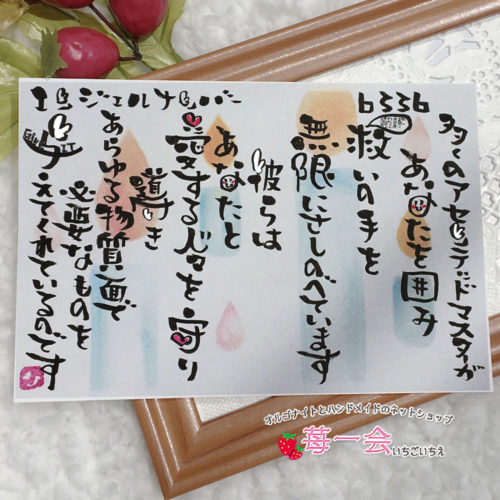 エンジェルナンバー
6336
多くのアセンデッドマスターが
あなたを囲み
救いの手を
無限にさしのべています
彼らは
あなたと
愛する人々を守り
導き
あらゆる物質面で
必要なものを
与えてくれているのです
オルゴナイトとハンドメイドのネットショップ
苺一会
いちごいちえ